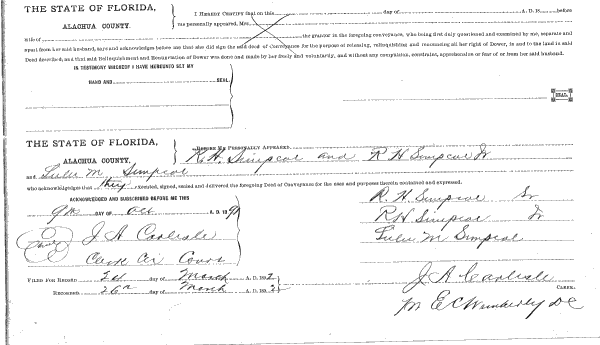 THE STATE OF FLORIDA,
ALACHUA COUNTY.
I HEREBY CERTIFY that on this day of A. D. 18 before
me personally appeared, Mrs.
wife of the grantor in the foregoing conveyance, who being first duly questioned and examined by me, separate and
apart from her said husband, says and acknowledges before me that she did sign the said deed of Conveyance for the purpose of releasing, relinquishing and renouncing all her right of Dower, in and to the land in said
Deed described, and that said Relinquishment and Renunciation of Dower was done and made by her freely and voluntarily, and without any compulsion, constraint, apprehension or fear of or from her said husband.
IN TESTIMONY WHEREOF I HAVE HEREUNTO SET MY
HAND AND SEAL.
SEAL.
THE STATE OF FLORIDA,
ALACHUA COUNTY.
BEFORE ME PERSONALLY APPEARED R. H. Simpson and R H Simpson Jr
and Lulu M Simpson
who acknowledges that they executed, signed, sealed and delivered the foregoing Deed of Conveyance for the uses and purposes therein contained and expressed.
ACKNOWLEDGED AND SUBSCRIBED BEFORE ME THIS
9th DAY OF Oct A. D. 1891
J. A Carlisle
Clerk Cir Court
R. H. Simpson Sr
R H Simpson Jr
Lulu M Simpson
FILED FOR RECORD day of March A. D. 1892
RECORDED 26th day of March A. D. 1892
J A Carlisle
CLERK.
E C Wimberly D C